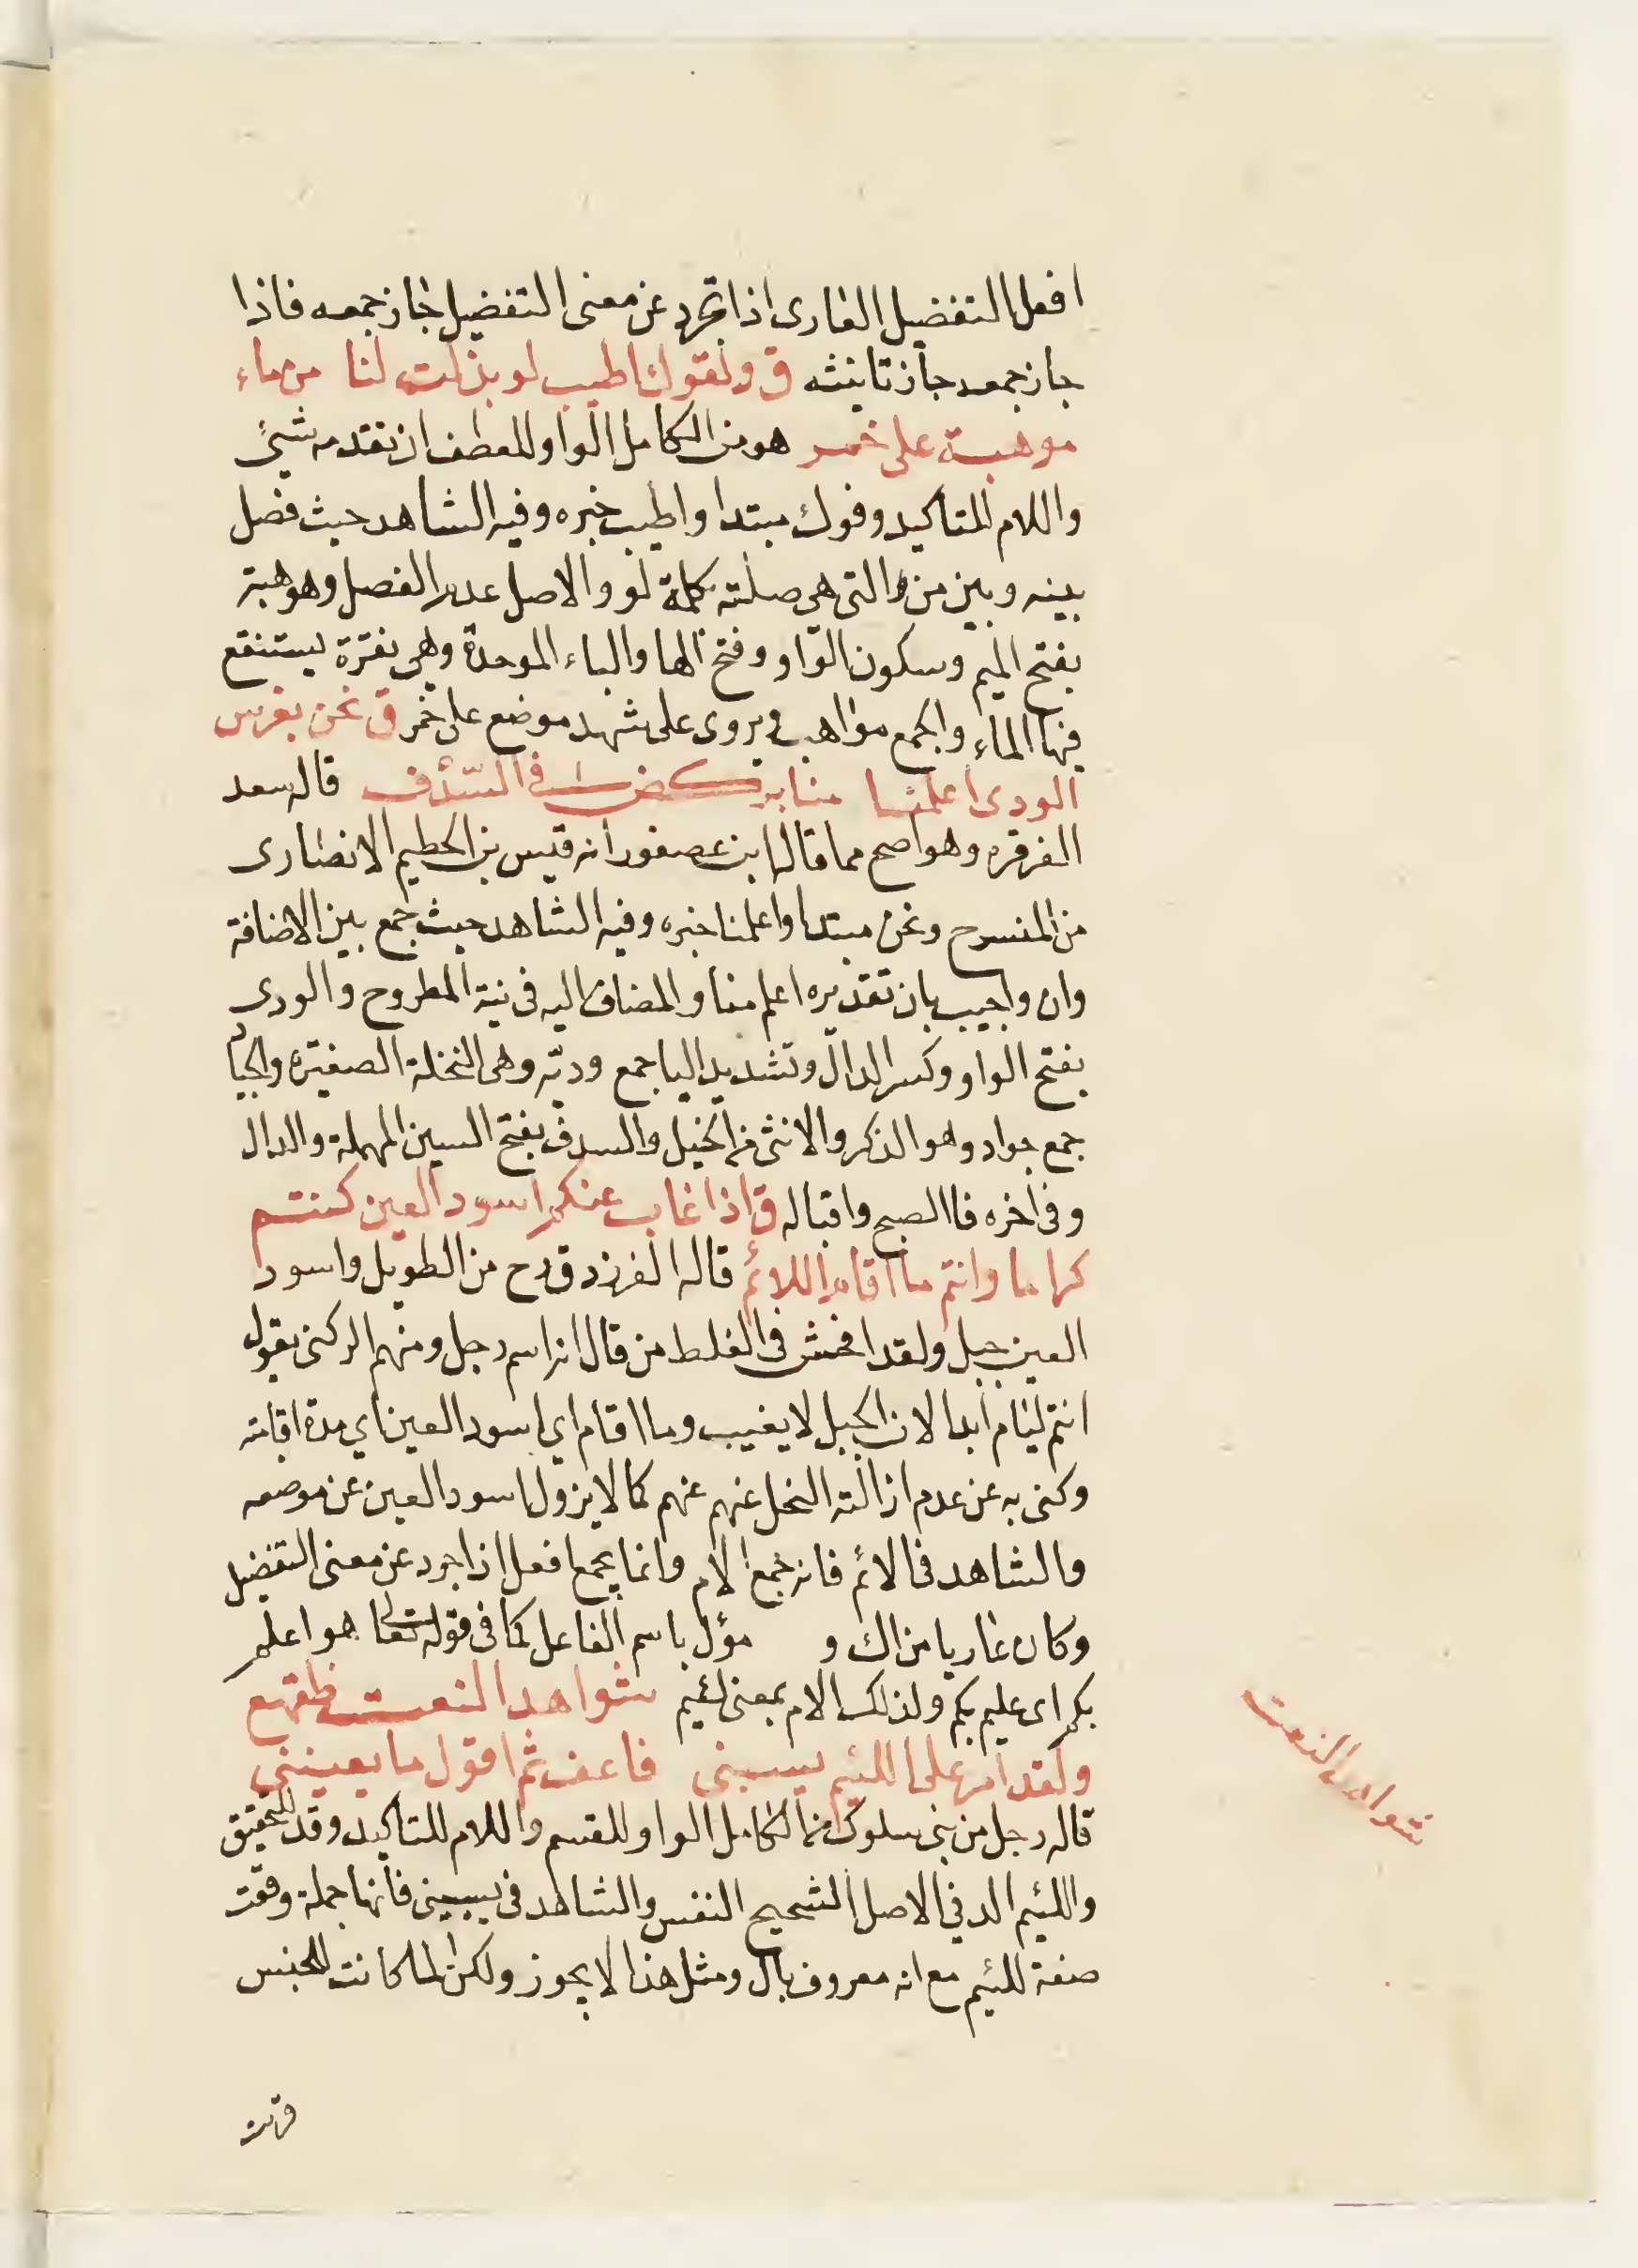 افعل التفضيل العارى اذا تجرد عن معنى التفضيل جاز جمعه فاذا
جاز جمعه جاز تانيثه ق ولفوك اطيب لو بذلت لنا من ماء
موهبة على خمر هو من الكامل الواو للعطف ان تقدمه شئ
واللام للتاكيد وفوك مبتدا واطيب خبره وفيه الشاهد حيث فصل
بينه وبين من التى هى صلته بكلمة لو والاصل عدم الفصل وموهبة
بفتح الميم وسكون الواو وفتح الها والباء الموحدة وهى نقرة يستنقع
فيها الماء والجمع مواهب ويروى على شهد موضع على خمر ق نحن بغرس
الودى اعلمنا منا بركض فى السدف قاله سعد
القرقره وهو اصح مما قاله ابن عصفور انه قيس بن الحطيم الانصارى
من المنسرح ونحن مبتدا واعلمنا خبره وفيه الشاهد حيث جمع بين الاضافة
وان واجيب بان تقديره اعلم منا والمضاف اليه فى نية المطروح والودى
بفتح الواو وكسر الدال وتشديد اليا جمع ودية وهى النخلة الصغيرة والجياد
جمع جواد وهو الذكر والانثى من الخيل والسدف بفتح السين المهملة والدال
وفى اخره فا الصبح واقباله ق اذا غاب عنكم اسود العين كنتم
كراما وانتم ما اقام اللائم قاله الفرزدق رح من الطويل واسود
العين جبل ولقد افحش فى الغلط من قال انه اسم رجل ومنهم الركنى يقول
انتم ليام ابدا لان الجبل لا يغيب وما اقام اي اسود العين اي مدة اقامته
وكنى به عن عدم ازالته البخل عنهم عنهم كما لا يزول اسود العين عن موضعه
والشاهد فى الائم فانه جمع الام وانما يجمع افعل اذا جرد عن معنى التفضيل
وكان عاريا من ال و مؤل باسم الفاعل كما فى قوله تعالى هو اعلم
بكم اى عليم بكم ولذلك الام بمعنى لئيم شواهد النعت ظقهع
ولقد امر على اللئيم يسبنى فاعف ثم اقول ما يعنينى
قاله رجل من بنى سلول من الكامل الواو للقسم واللام للتاكيد وقد للتحقيق
واللئيم الدنى الاصل الشحيح النفس والشاهد فى يسبنى فانها جملة وقعت
صفة للئيم مع انه معروف بال ومثل هذا لا يجوز ولكن لما كانت للجنس
شواهد النعت
قربت